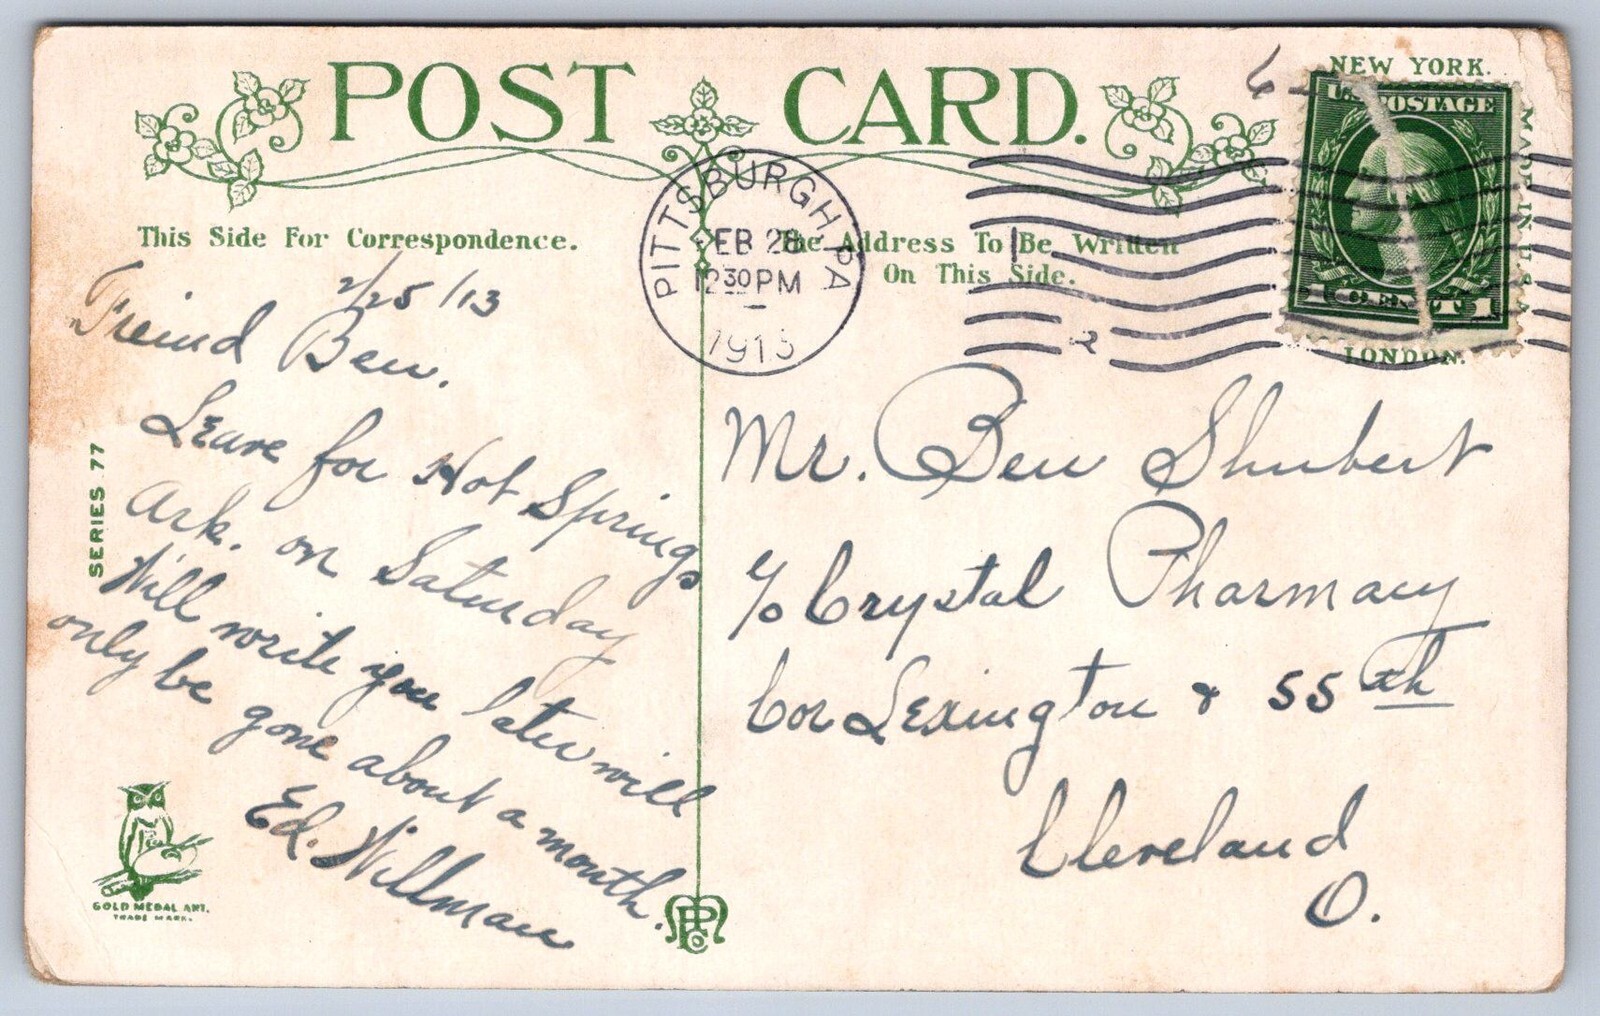 POST CARD.
NEW YORK.
MADE IN U.S.A.
LONDON.
U.S. POSTAGE
1 CENT 1
PITTSBURGH, PA
FEB 28
12 30 PM
1913
2
6
This Side For Correspondence.
The Address To Be Written
On This Side.
2/25/13
Freind Ben.
Leave for Hot Springs
Ark. on Saturday
Will write you later will
only be gone about a month.
Ed. Willman
Mr. Ben Shubert
c/o Crystal Pharmacy
Cor Lexington & 55th
Cleveland
O.
SERIES 77
GOLD MEDAL ART.
TRADE MARK.